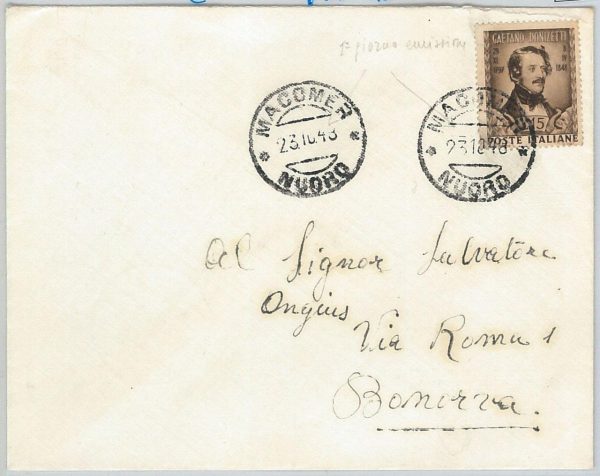 1° giorno emissione
GAETANO DONIZETTI
1797 1848
15
POSTE ITALIANE
MACOMER
23.10.48
NUORO
MACOMER
23.10.48
NUORO
Al Signor Salvatore
Ongius
Via Roma 1
Bonorva.